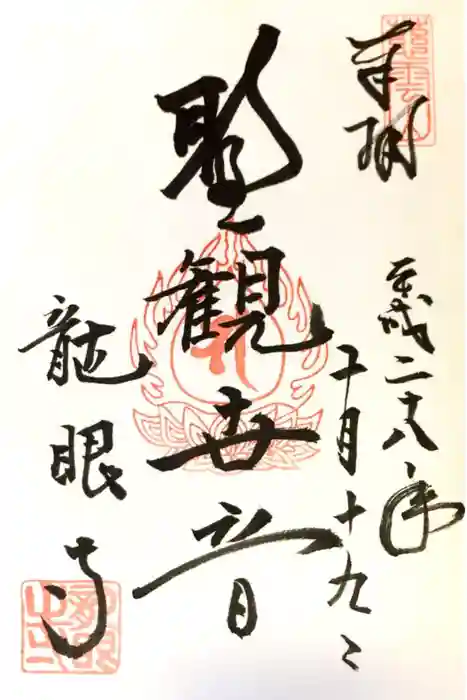 奉拝
平成二十八年
十月十九日
聖観世音
龍眼寺